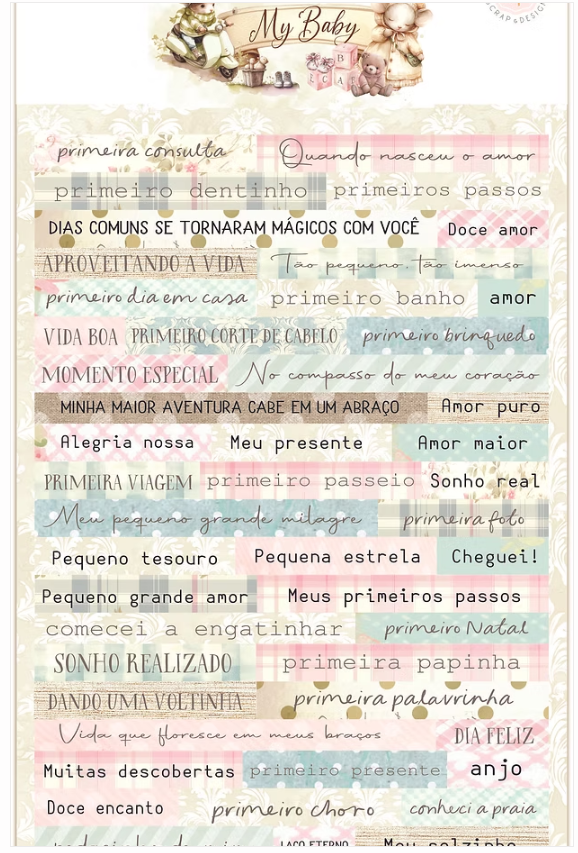 My Baby
SCRAP & DESIGN
B
C A
primeira consulta Quando nasceu o amor
primeiro dentinho primeiros passos
DIAS COMUNS SE TORNARAM MÁGICOS COM VOCÊ Doce amor
APROVEITANDO A VIDA Tão pequeno, tão imenso
primeiro dia em casa primeiro banho amor
VIDA BOA PRIMEIRO CORTE DE CABELO primeiro brinquedo
MOMENTO ESPECIAL No compasso do meu coração
MINHA MAIOR AVENTURA CABE EM UM ABRAÇO Amor puro
Alegria nossa Meu presente Amor maior
PRIMEIRA VIAGEM primeiro passeio Sonho real
Meu pequeno grande milagre primeira foto
Pequeno tesouro Pequena estrela Cheguei!
Pequeno grande amor Meus primeiros passos
comecei a engatinhar primeiro Natal
SONHO REALIZADO primeira papinha
DANDO UMA VOLTINHA primeira palavrinha
Vida que floresce em meus braços DIA FELIZ
Muitas descobertas primeiro presente anjo
Doce encanto primeiro choro conheci a praia
LAÇO ETERNO Meu solzinho